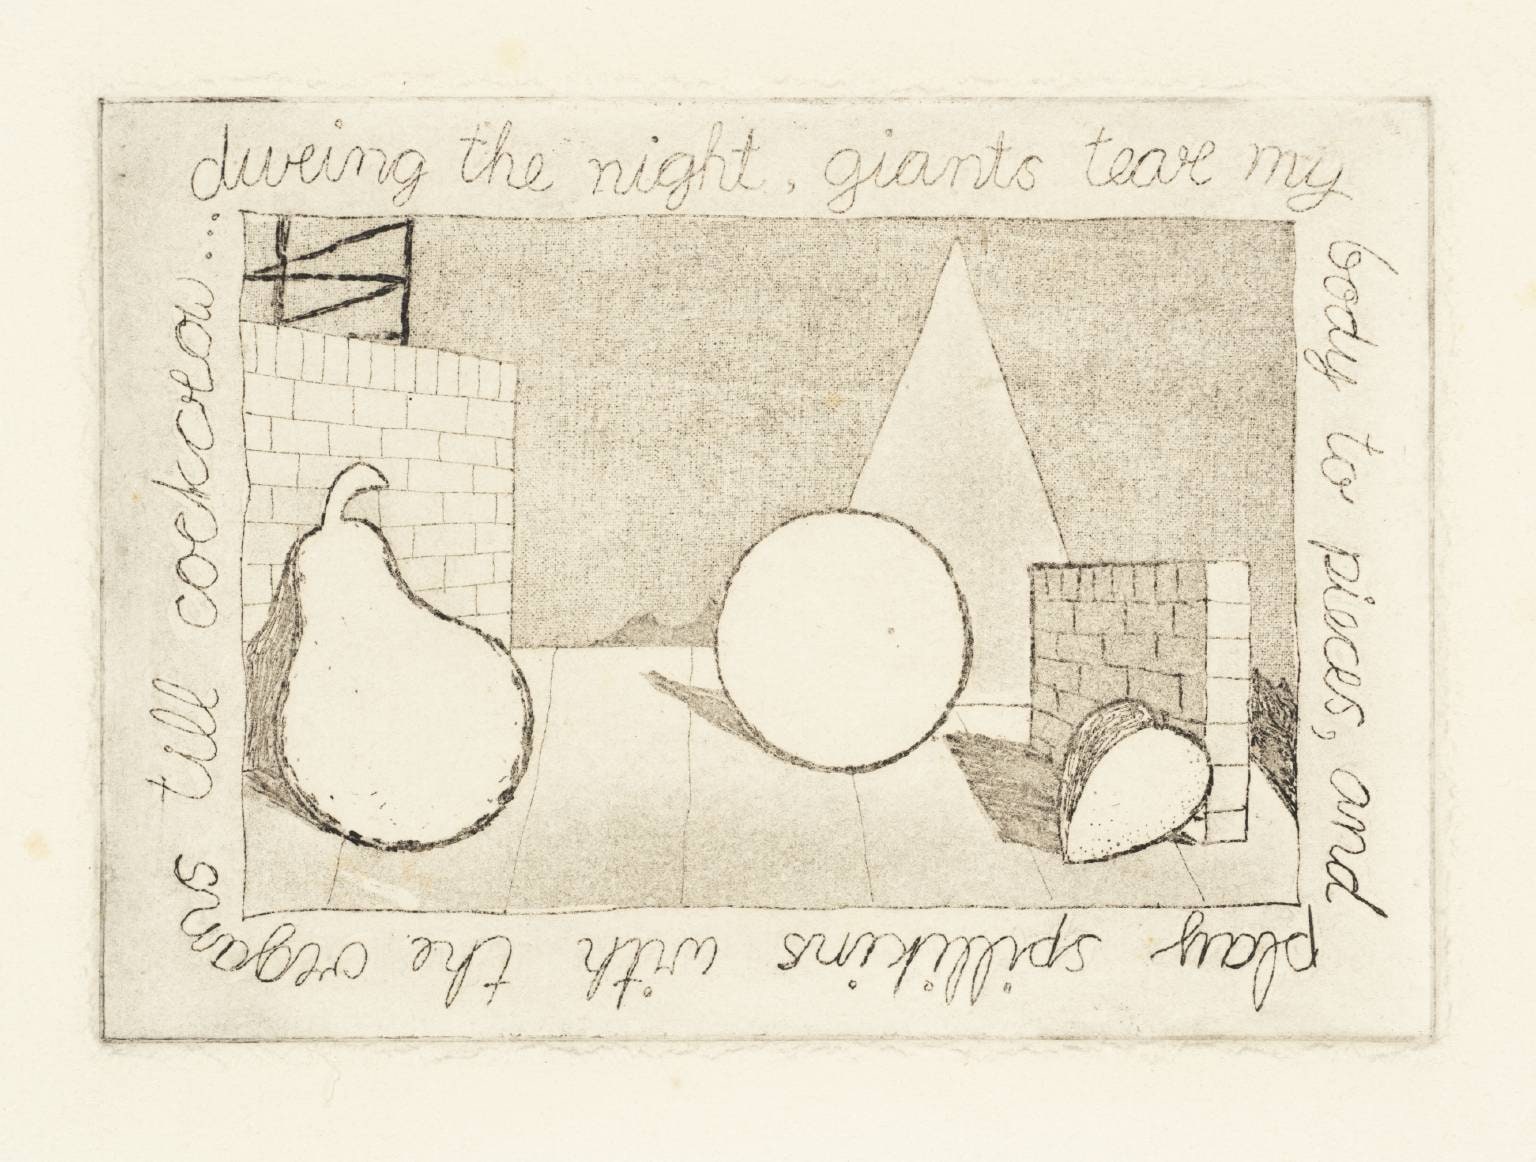 during the night, giants tear my
body to pieces, and
play spillikins with the organs
till cockcrow...